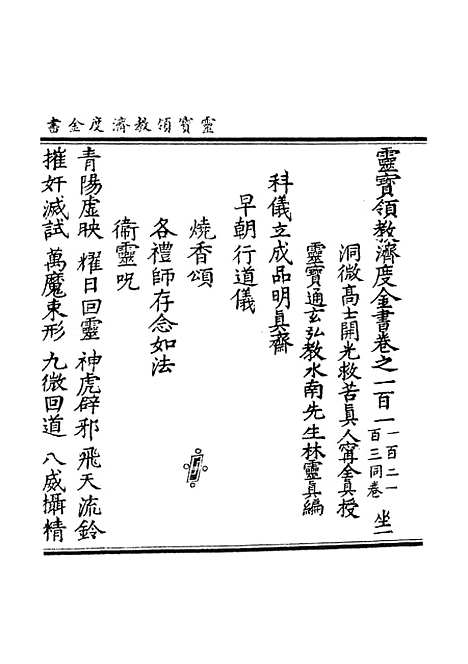 靈寶領教濟度金書
靈寶領教濟度金書卷之一百一一百二一百三同卷 坐一
洞微高士開光救苦真人甯全真授
靈寶通玄弘教水南先生林靈真編
科儀立成品明真齋
早朝行道儀
燒香頌
各禮師存念如法
衛靈呪
青陽虛映 耀日回靈 神虎辟邪 飛天流鈴
摧奸滅試 萬魔束形 九微回道 八威攝精